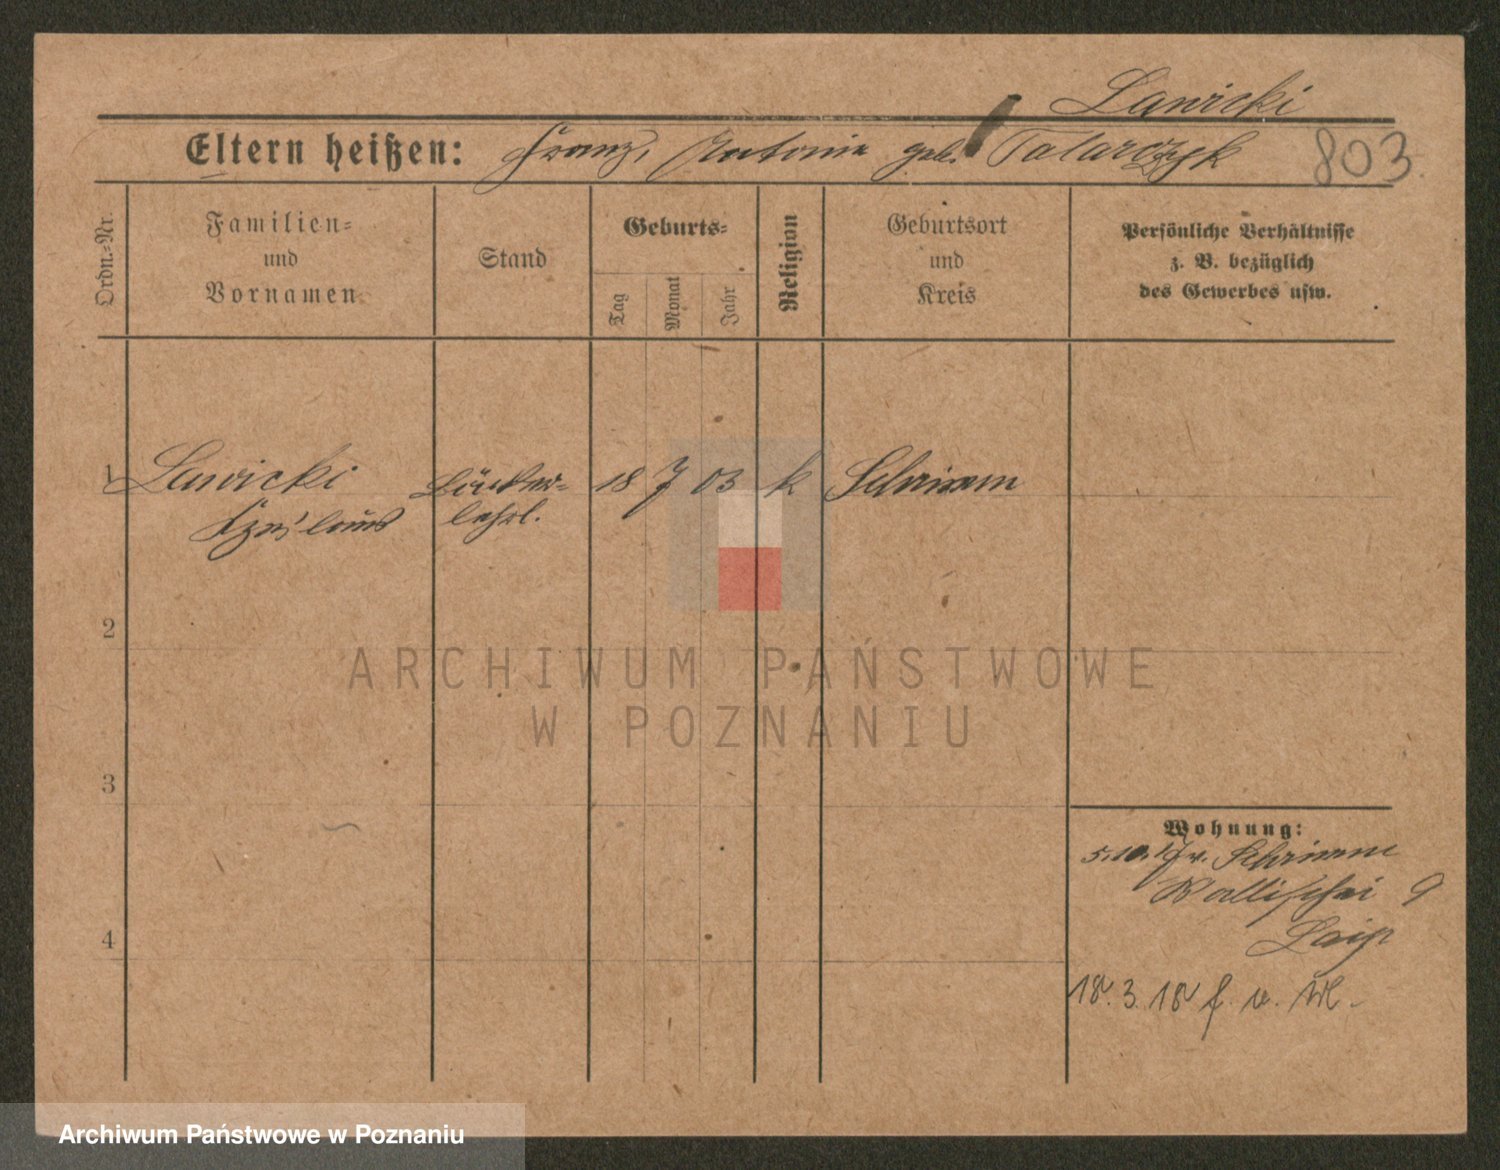 Lawicki
Eltern heißen: Franz, Antonie geb. Tatarczyk 803
Ordn.-Nr.
Familien-
und
Vornamen
Stand
Geburts-
Tag
Monat
Jahr
Religion
Geburtsort
und
Kreis
Persönliche Verhältnisse
z. B. bezüglich
des Gewerbes usw.
1 Lawicki Bäcker- 18 7 03 k Schrimm
lehrl.
2
3
4
Wohnung:
5.10.17 v. Schrimm
Wallischei 9
18. 3. 18 f. v.
ARCHIWUM PAŃSTWOWE
W POZNANIU
Archiwum Państwowe w Poznaniu